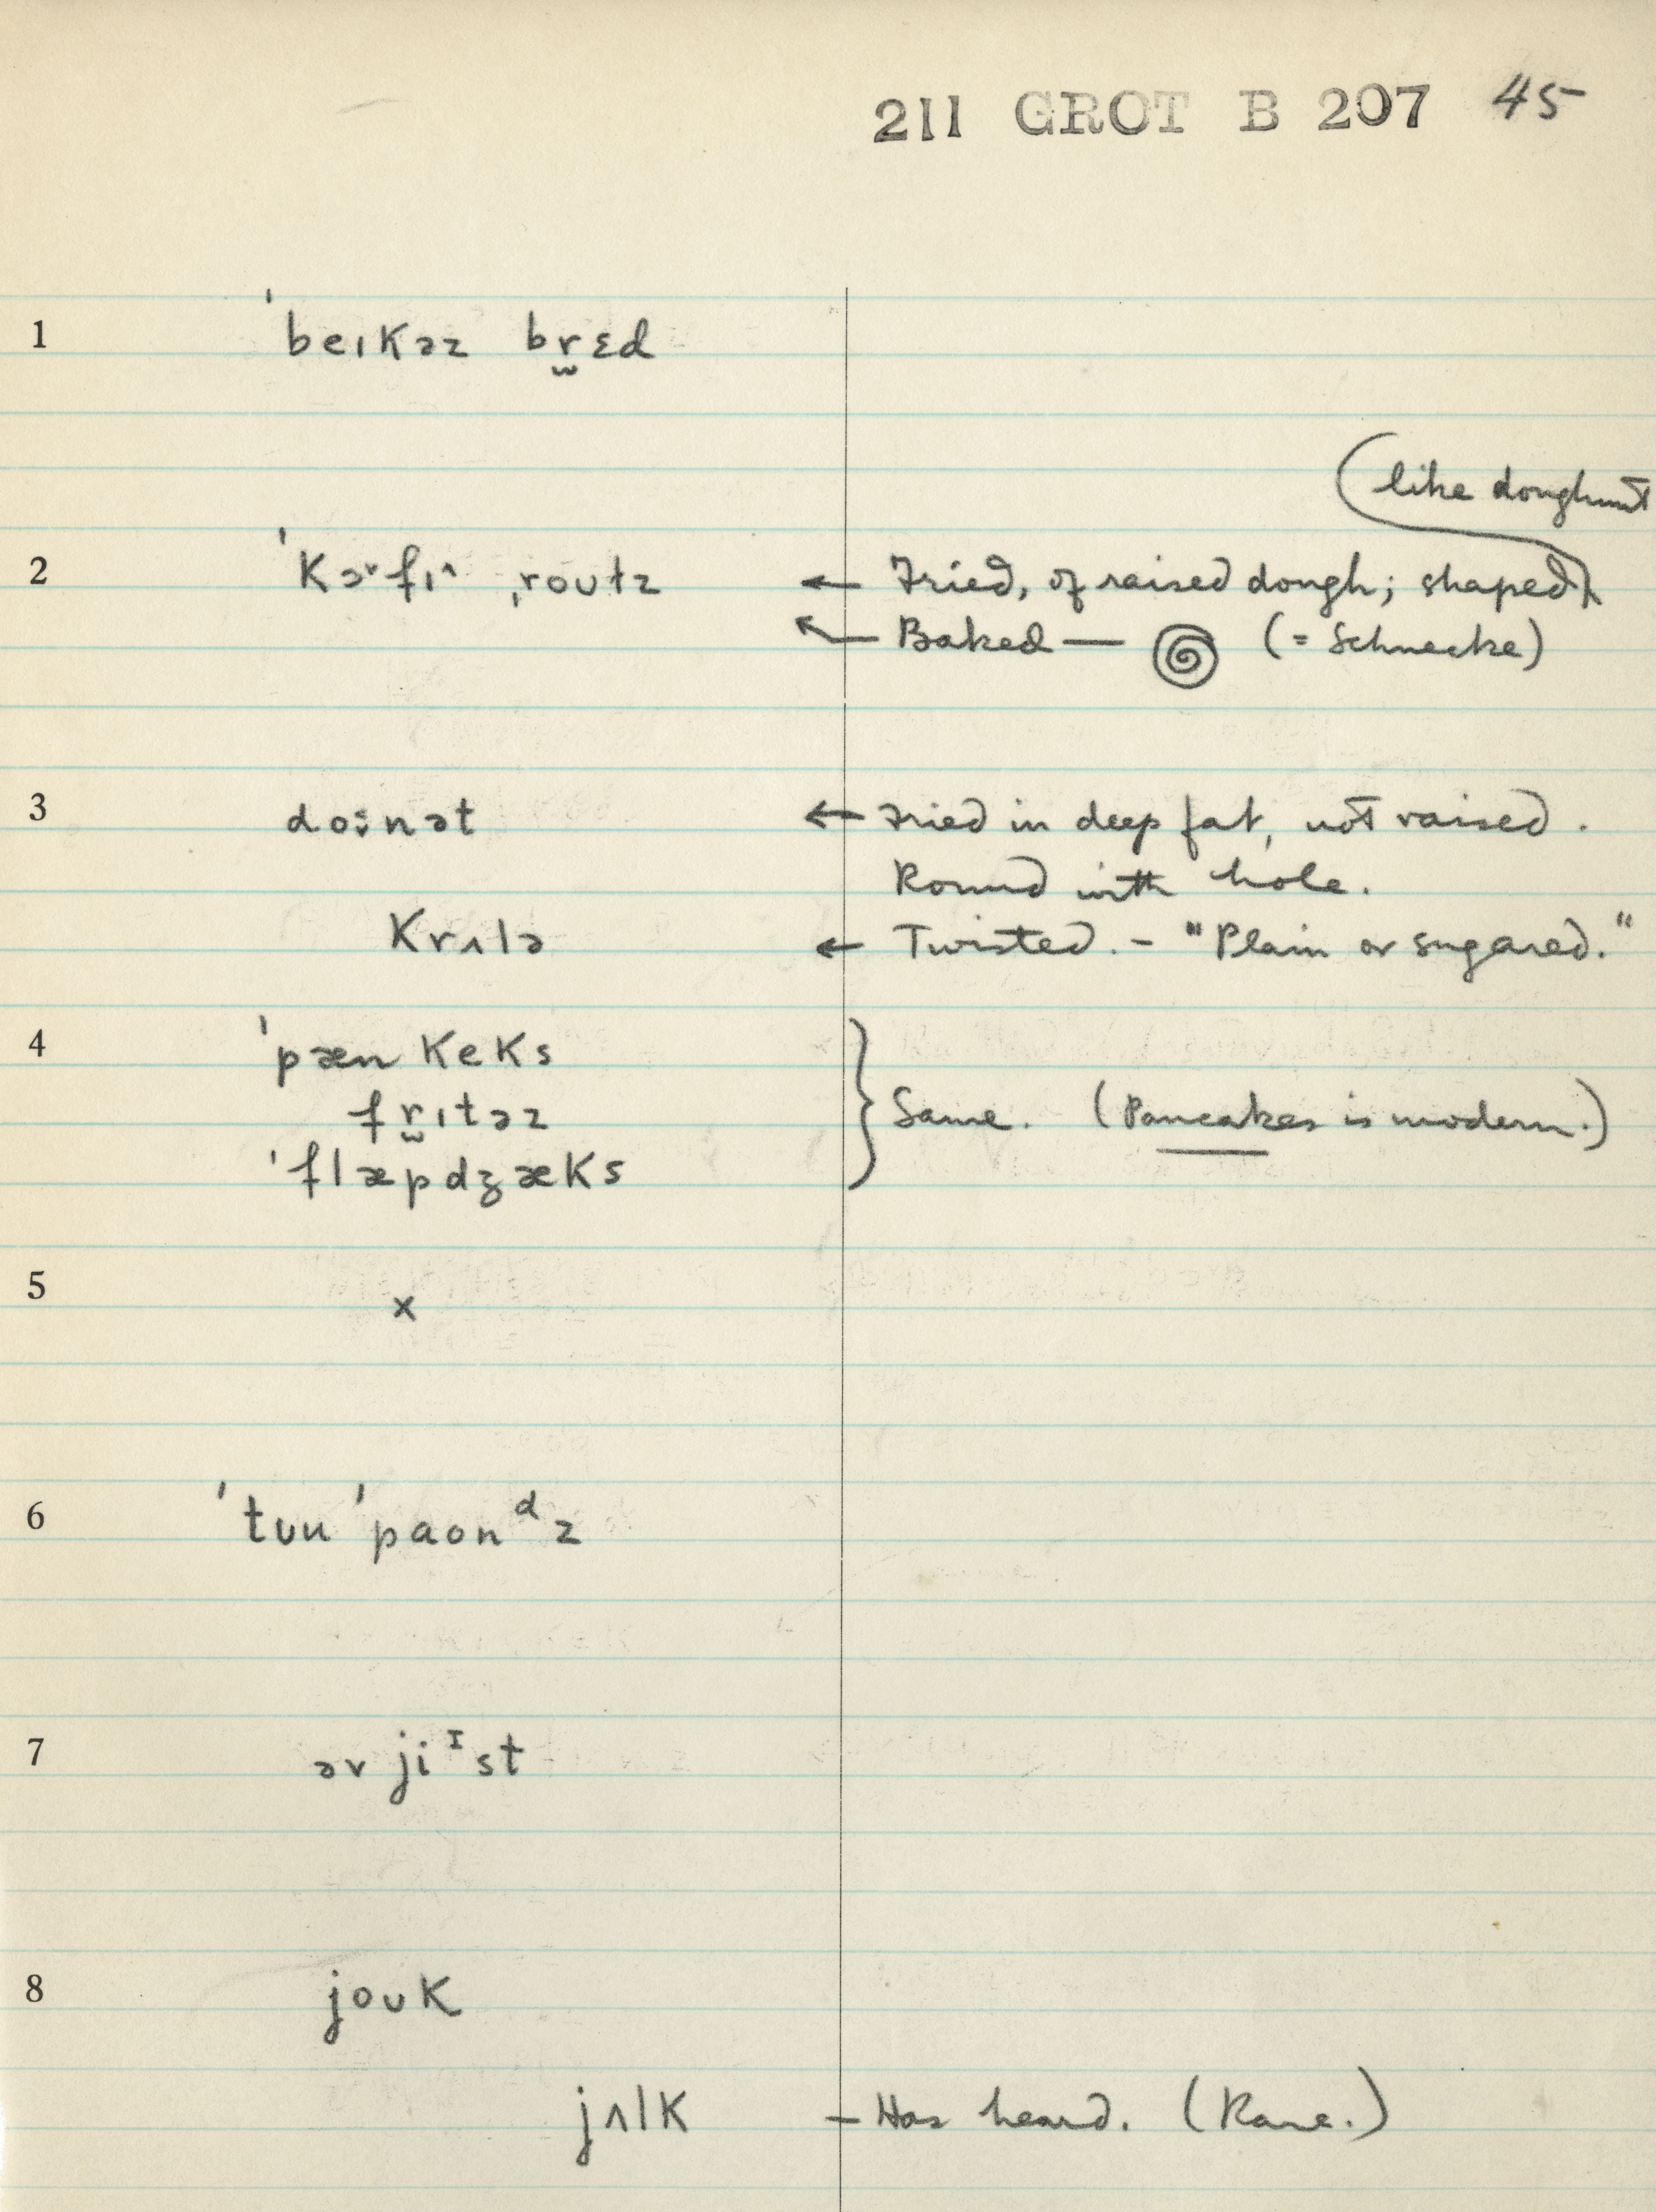 211 GROT B 207 45
1 ˈbeɪkəz br̬ɛd
(like doughnut)
2 ˈkɔ˅fɪ^ ˌroʊlz ← Fried, of raised dough; shaped
← Baked — (= Schnecke)
3 doːnət ← Fried in deep fat, not raised.
Round with hole.
krʌlə ← Twisted. - "Plain or sugared."
4 ˈpænkeks
fr̬ɪtəz } Same. (Pancakes is modern.)
ˈflæpdʒæks
5 x
6 ˈtʊu ˈpaond z
7 əv jiɪst
8 joʊk
jʌlk - Has heard. (Rare.)